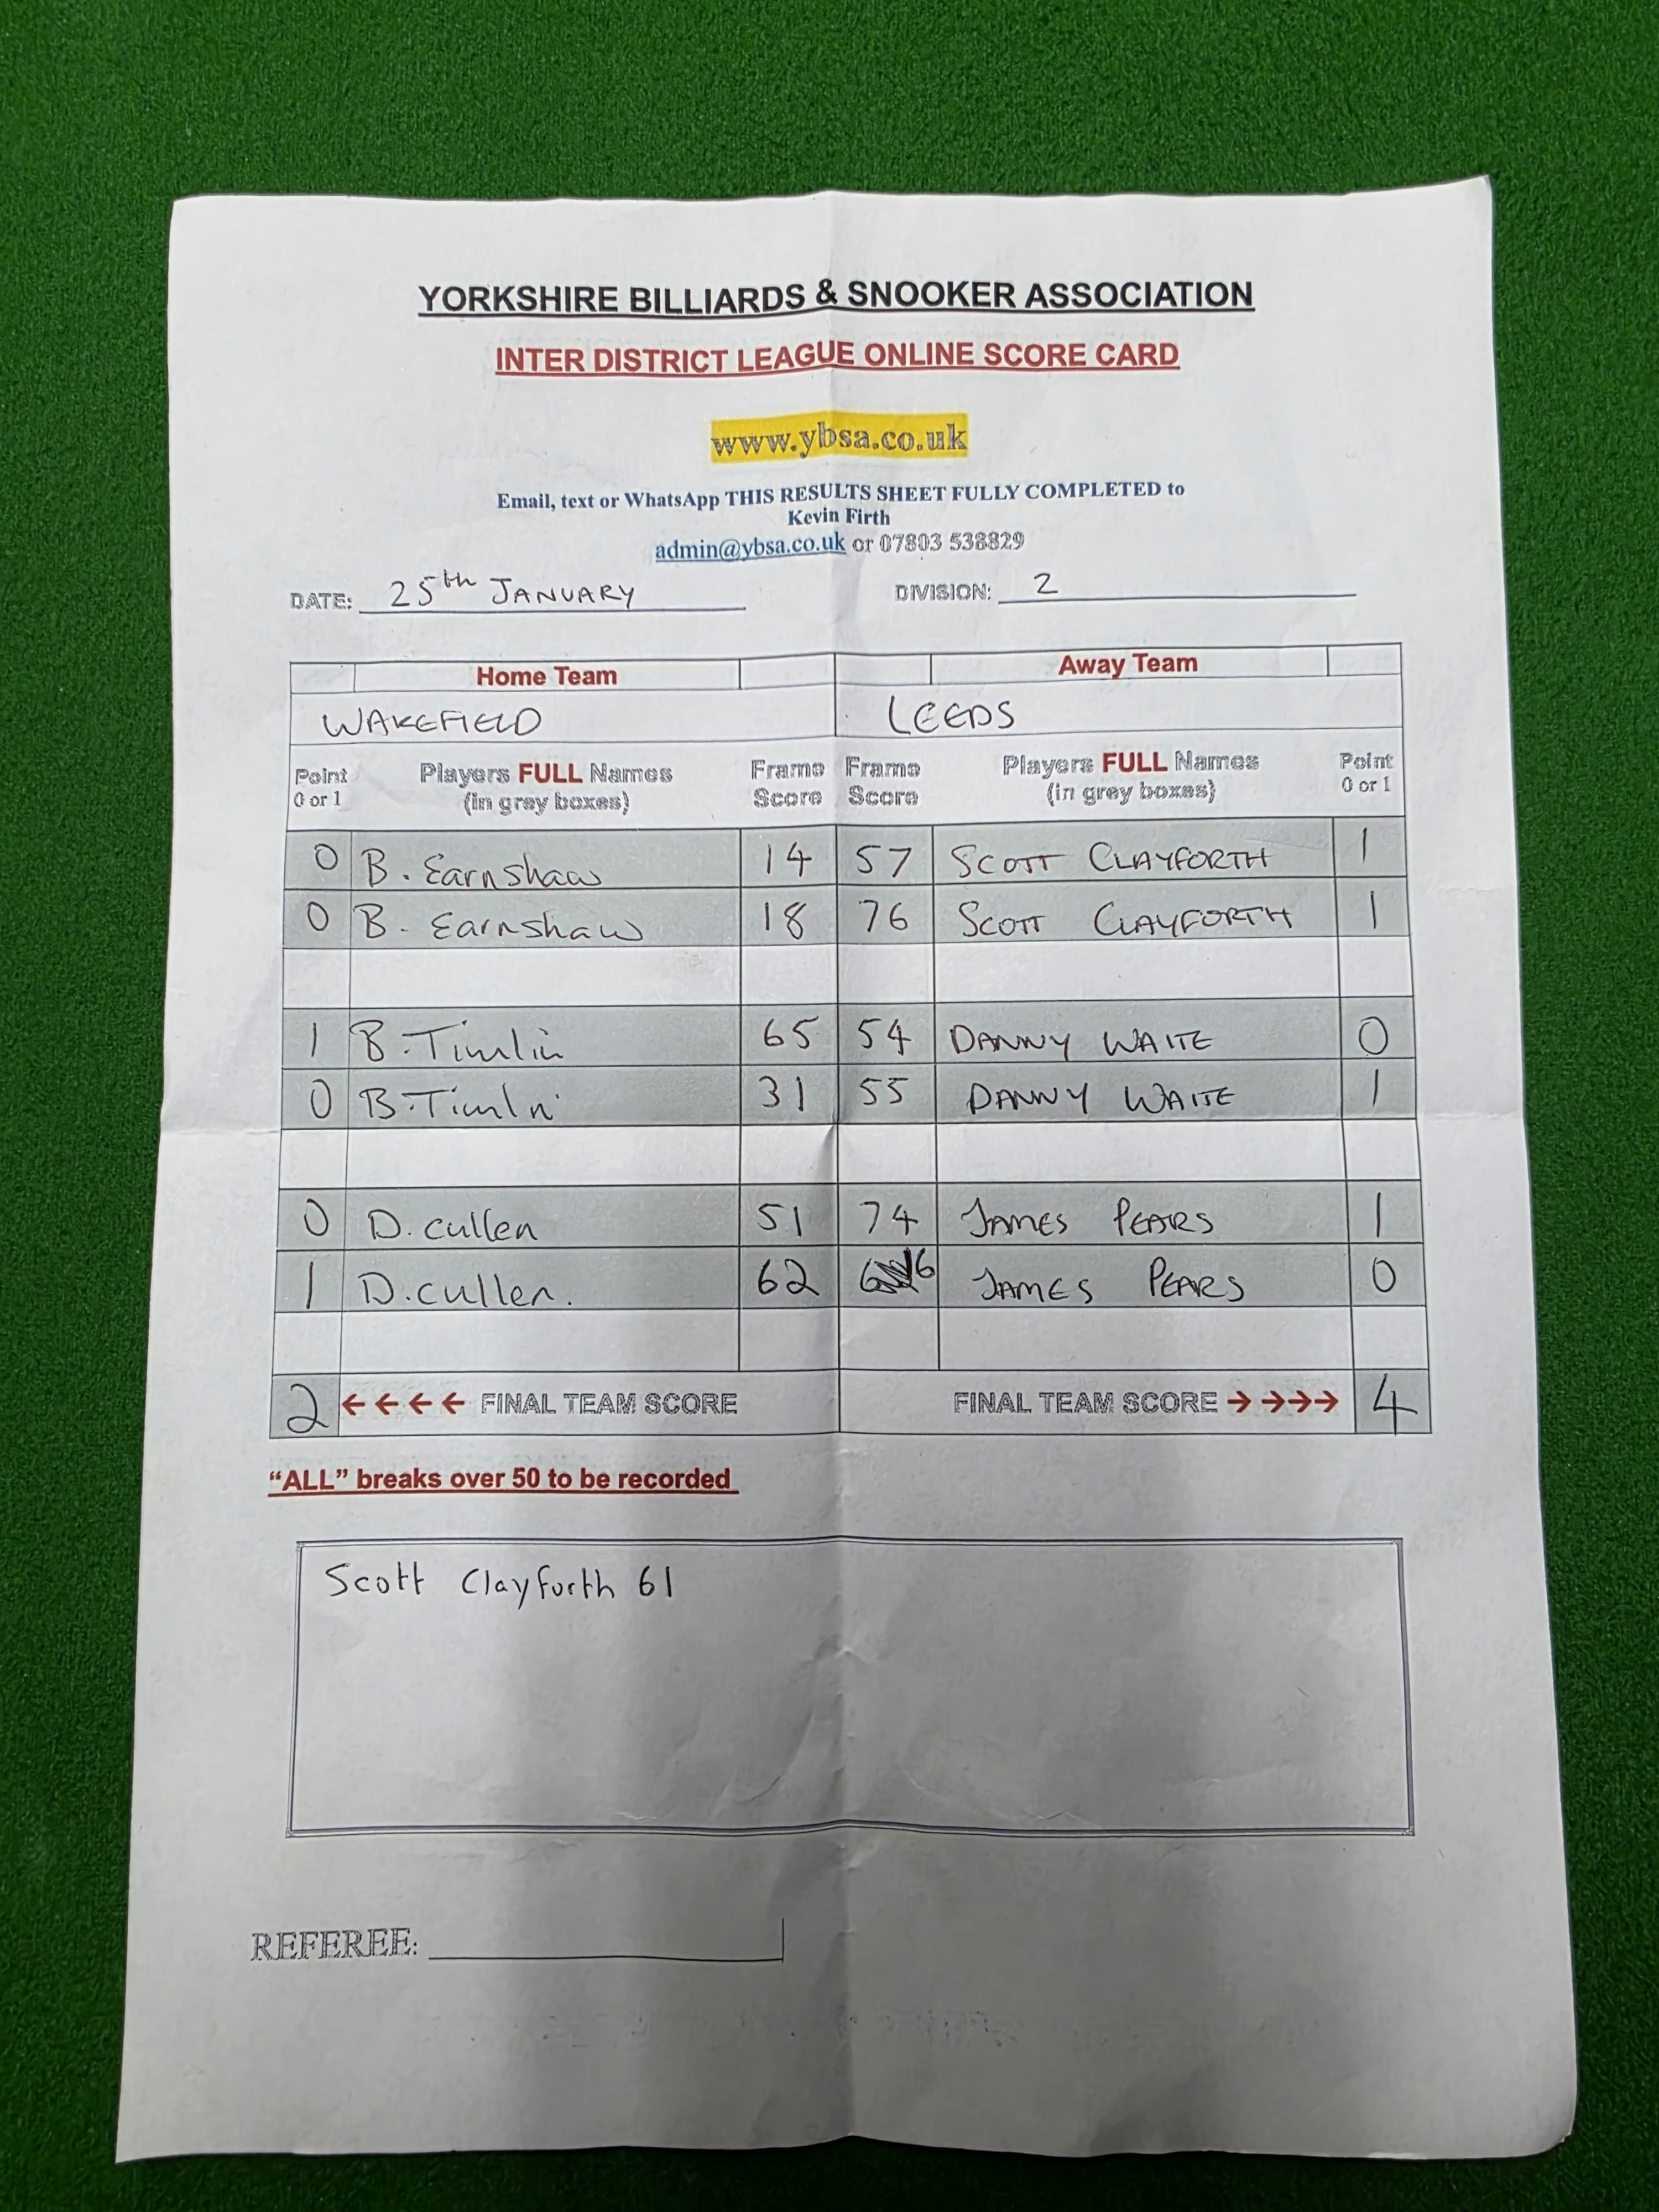 YORKSHIRE BILLIARDS & SNOOKER ASSOCIATION
INTER DISTRICT LEAGUE ONLINE SCORE CARD
www.ybsa.co.uk
Email, text or WhatsApp THIS RESULTS SHEET FULLY COMPLETED to
Kevin Firth
admin@ybsa.co.uk or 07803 538829
DATE: 25th JANUARY DIVISION: 2
Home Team Away Team
WAKEFIELD LEEDS
Point Players FULL Names Frame Frame Players FULL Names Point
0 or 1 (in grey boxes) Score Score (in grey boxes) 0 or 1
0 B. Earnshaw 14 57 SCOTT CLAYFORTH 1
0 B. Earnshaw 18 76 SCOTT CLAYFORTH 1
1 B. Timlin 65 54 DANNY WAITE 0
0 B. Timlin 31 55 DANNY WAITE 1
0 D. cullen 51 74 JAMES PEARS 1
1 D. cullen. 62 JAMES PEARS 0
2 ←←←← FINAL TEAM SCORE FINAL TEAM SCORE →→→→ 4
“ALL” breaks over 50 to be recorded
Scott Clayforth 61
REFEREE: